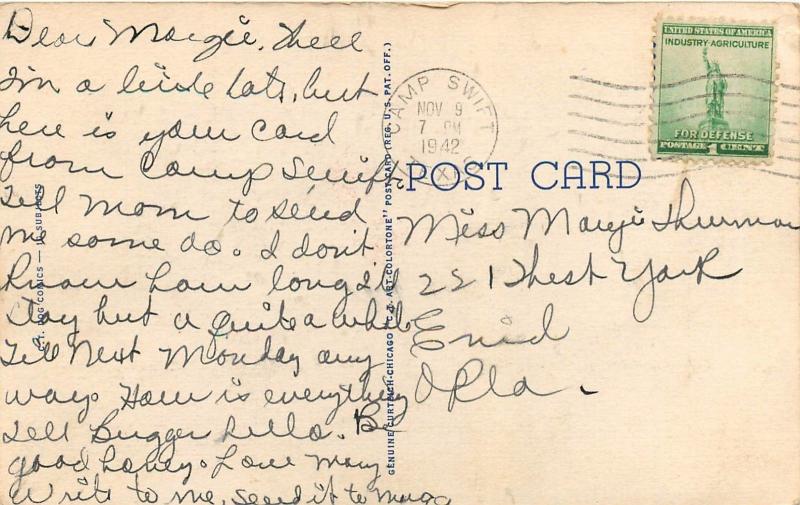 Dear Margie, Well
I'm a little late, but
here is your card
from Camp Swift.
Tell Mom to send
me some do. I don't
know how long I'll
stay but a quite a while
Till Next Monday any
way. How is everything
Tell Bugger hello. Be
good honey. Love Mary
Write to me, send it to
C.T. DOG COMICS — 10 SUBJECTS
GENUINE CURTEICH-CHICAGO "C.T. ART-COLORTONE" POST CARD (REG. U.S. PAT. OFF.)
CAMP SWIFT
NOV 9
7 PM
1942
UNITED STATES OF AMERICA
INDUSTRY-AGRICULTURE
FOR DEFENSE
POSTAGE 1 CENT
POST CARD
Miss Margie Thurman
221 West York
Enid
Okla.